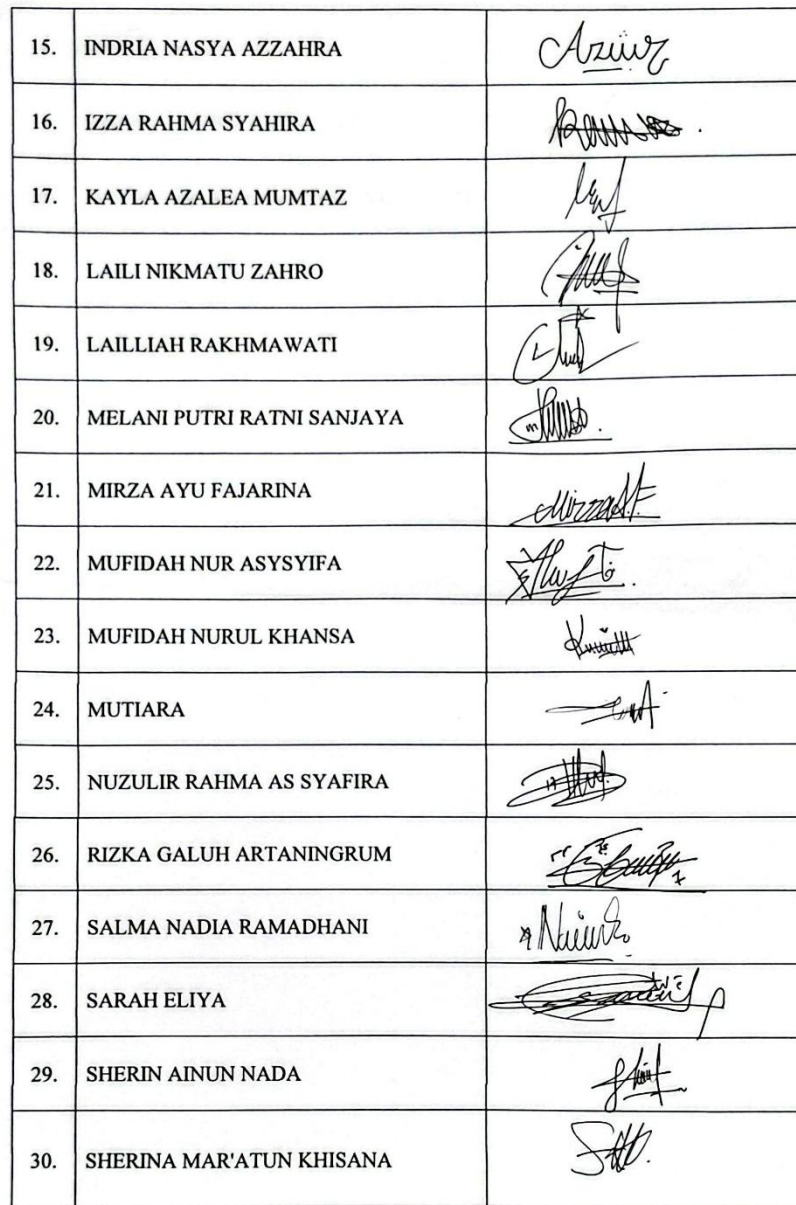 15. INDRIA NASYA AZZAHRA
16. IZZA RAHMA SYAHIRA
17. KAYLA AZALEA MUMTAZ
18. LAILI NIKMATU ZAHRO
19. LAILLIAH RAKHMAWATI
20. MELANI PUTRI RATNI SANJAYA
21. MIRZA AYU FAJARINA
22. MUFIDAH NUR ASYSYIFA
23. MUFIDAH NURUL KHANSA
24. MUTIARA
25. NUZULIR RAHMA AS SYAFIRA
26. RIZKA GALUH ARTANINGRUM
27. SALMA NADIA RAMADHANI
28. SARAH ELIYA
29. SHERIN AINUN NADA
30. SHERINA MAR'ATUN KHISANA